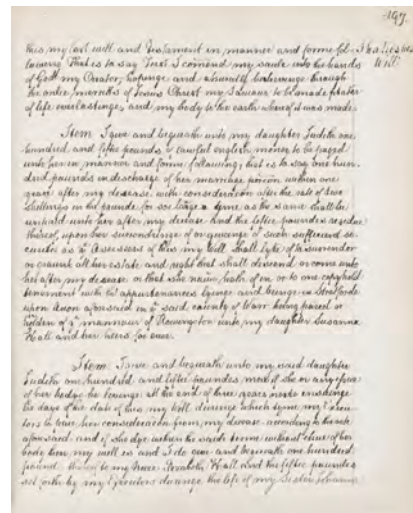 197
this, my last will and Testament in manner and forme fol-
lowing That is to say First I comend my soule into the hands
of God my Creator, hopinge and assuredly believinge through
the onlie merritts of Jesus Christ my Saviour to be made partaker
of life everlastinge, and my body to the earth whereof it was made.
Item I give and bequeath unto my daughter Judith one
hundred and fiftie pounds of lawful english money to be payed
unto her in manner and forme following; that is to say one hun-
dred pounds in discharge of her marriage porcion within one
year after my decease with consideracion after the rate of two
shillings in the pound for soe long a tyme as the same shall be
unpaid unto her after my decease And the fiftie poundes residue
thereof, upon her surrendringe of or gyvinge of such sufficient se-
curitie as Overseers of this my Will shall lyke of to surrender
or graunt all her estate and right that shall descend or come unto
her after my decease or that she nowe hath of in or to one copyhold
tenement with appurtenances lyinge and beinge in Stratforde
upon Avon aforesaid in said county of Warr being parcel or
holden of mannour of Rowington unto my daughter Susanna
Hall and her heirs for ever.
Item I give and bequeath unto my said daughter
Judith one hundred and fiftie poundes more if she or any issue
of her bodye be lyvinge att the end of three years next ensueinge
the daye of the date of this my Will, during which tyme my Execu-
tors to her consideracion from my decease according to the rate
aforesaid and if she dye within the said terme without issue of her
body then my will is and I do give and bequeath one hundred
pound to my Niece Elizabeth Hall and the fiftie poundes
set forth by my Executors during the life of my Sister Johanna